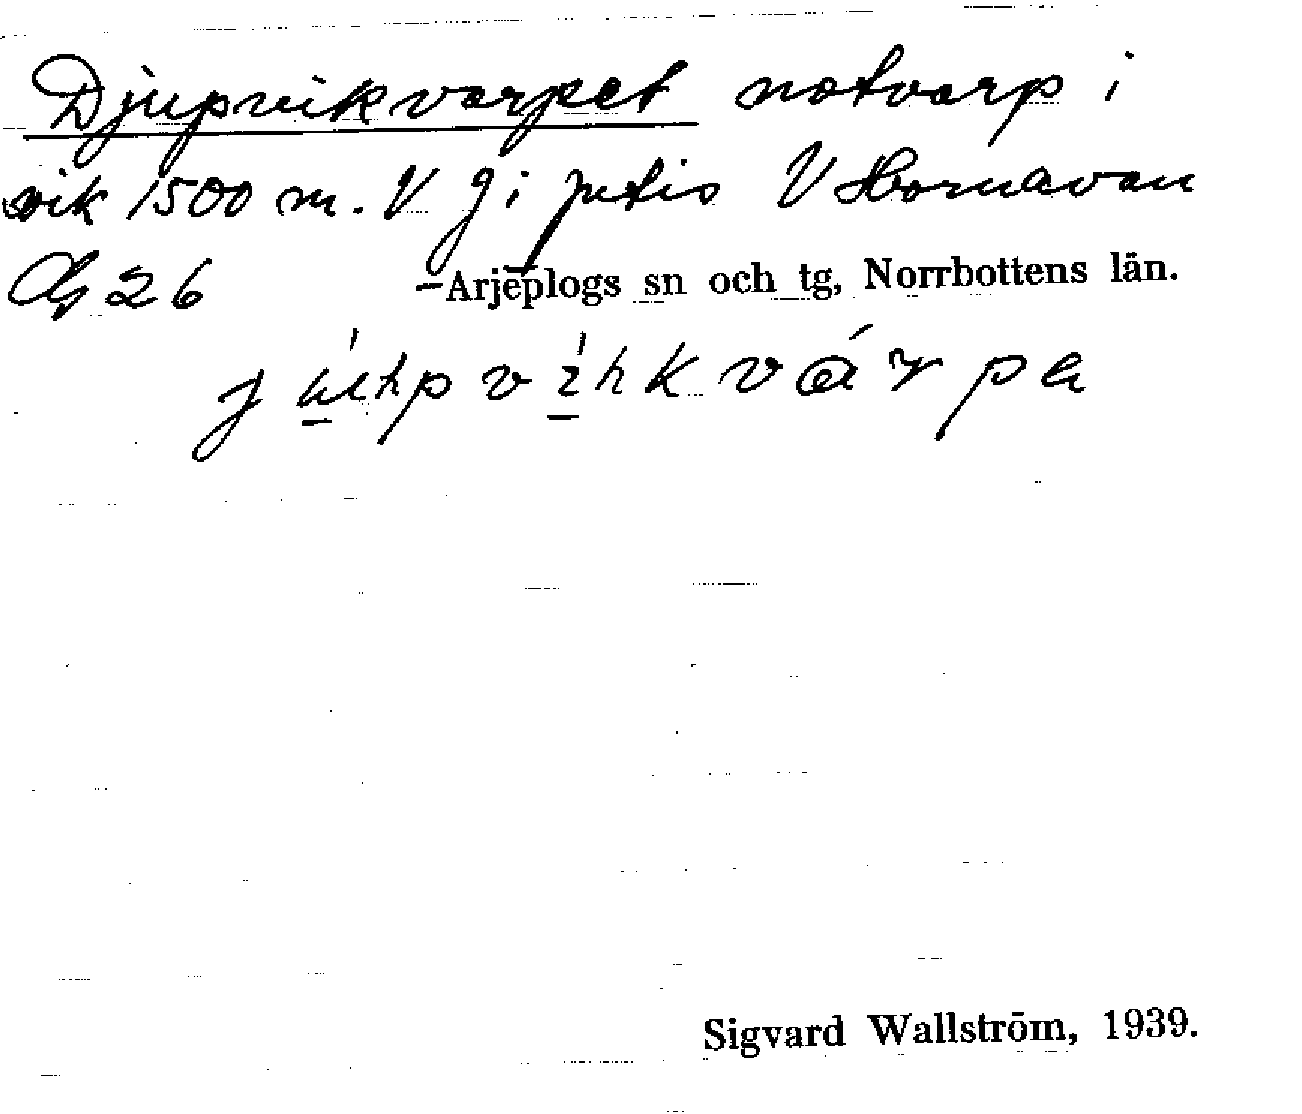 Djupvikvarpet notvarp i
vik 1500 m. V g i jutis V Hornavan
26 Arjeplogs sn och tg, Norrbottens län.
Sigvard Wallström, 1939.